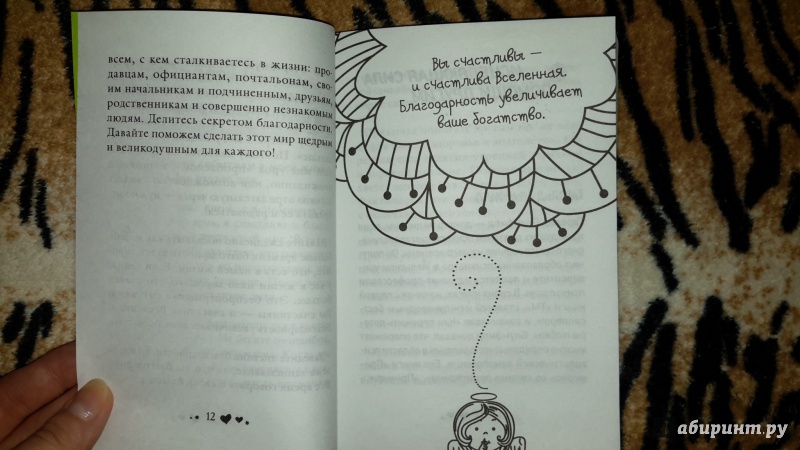 всем, с кем сталкиваетесь в жизни: про-
давцам, официантам, почтальонам, сво-
им начальникам и подчиненным, друзьям,
родственникам и совершенно незнакомым
людям. Делитесь секретом благодарности.
Давайте поможем сделать этот мир щедрым
и великодушным для каждого!
12
Вы счастливы —
и счастлива Вселенная.
Благодарность увеличивает
ваше богатство.
абиринт.ру